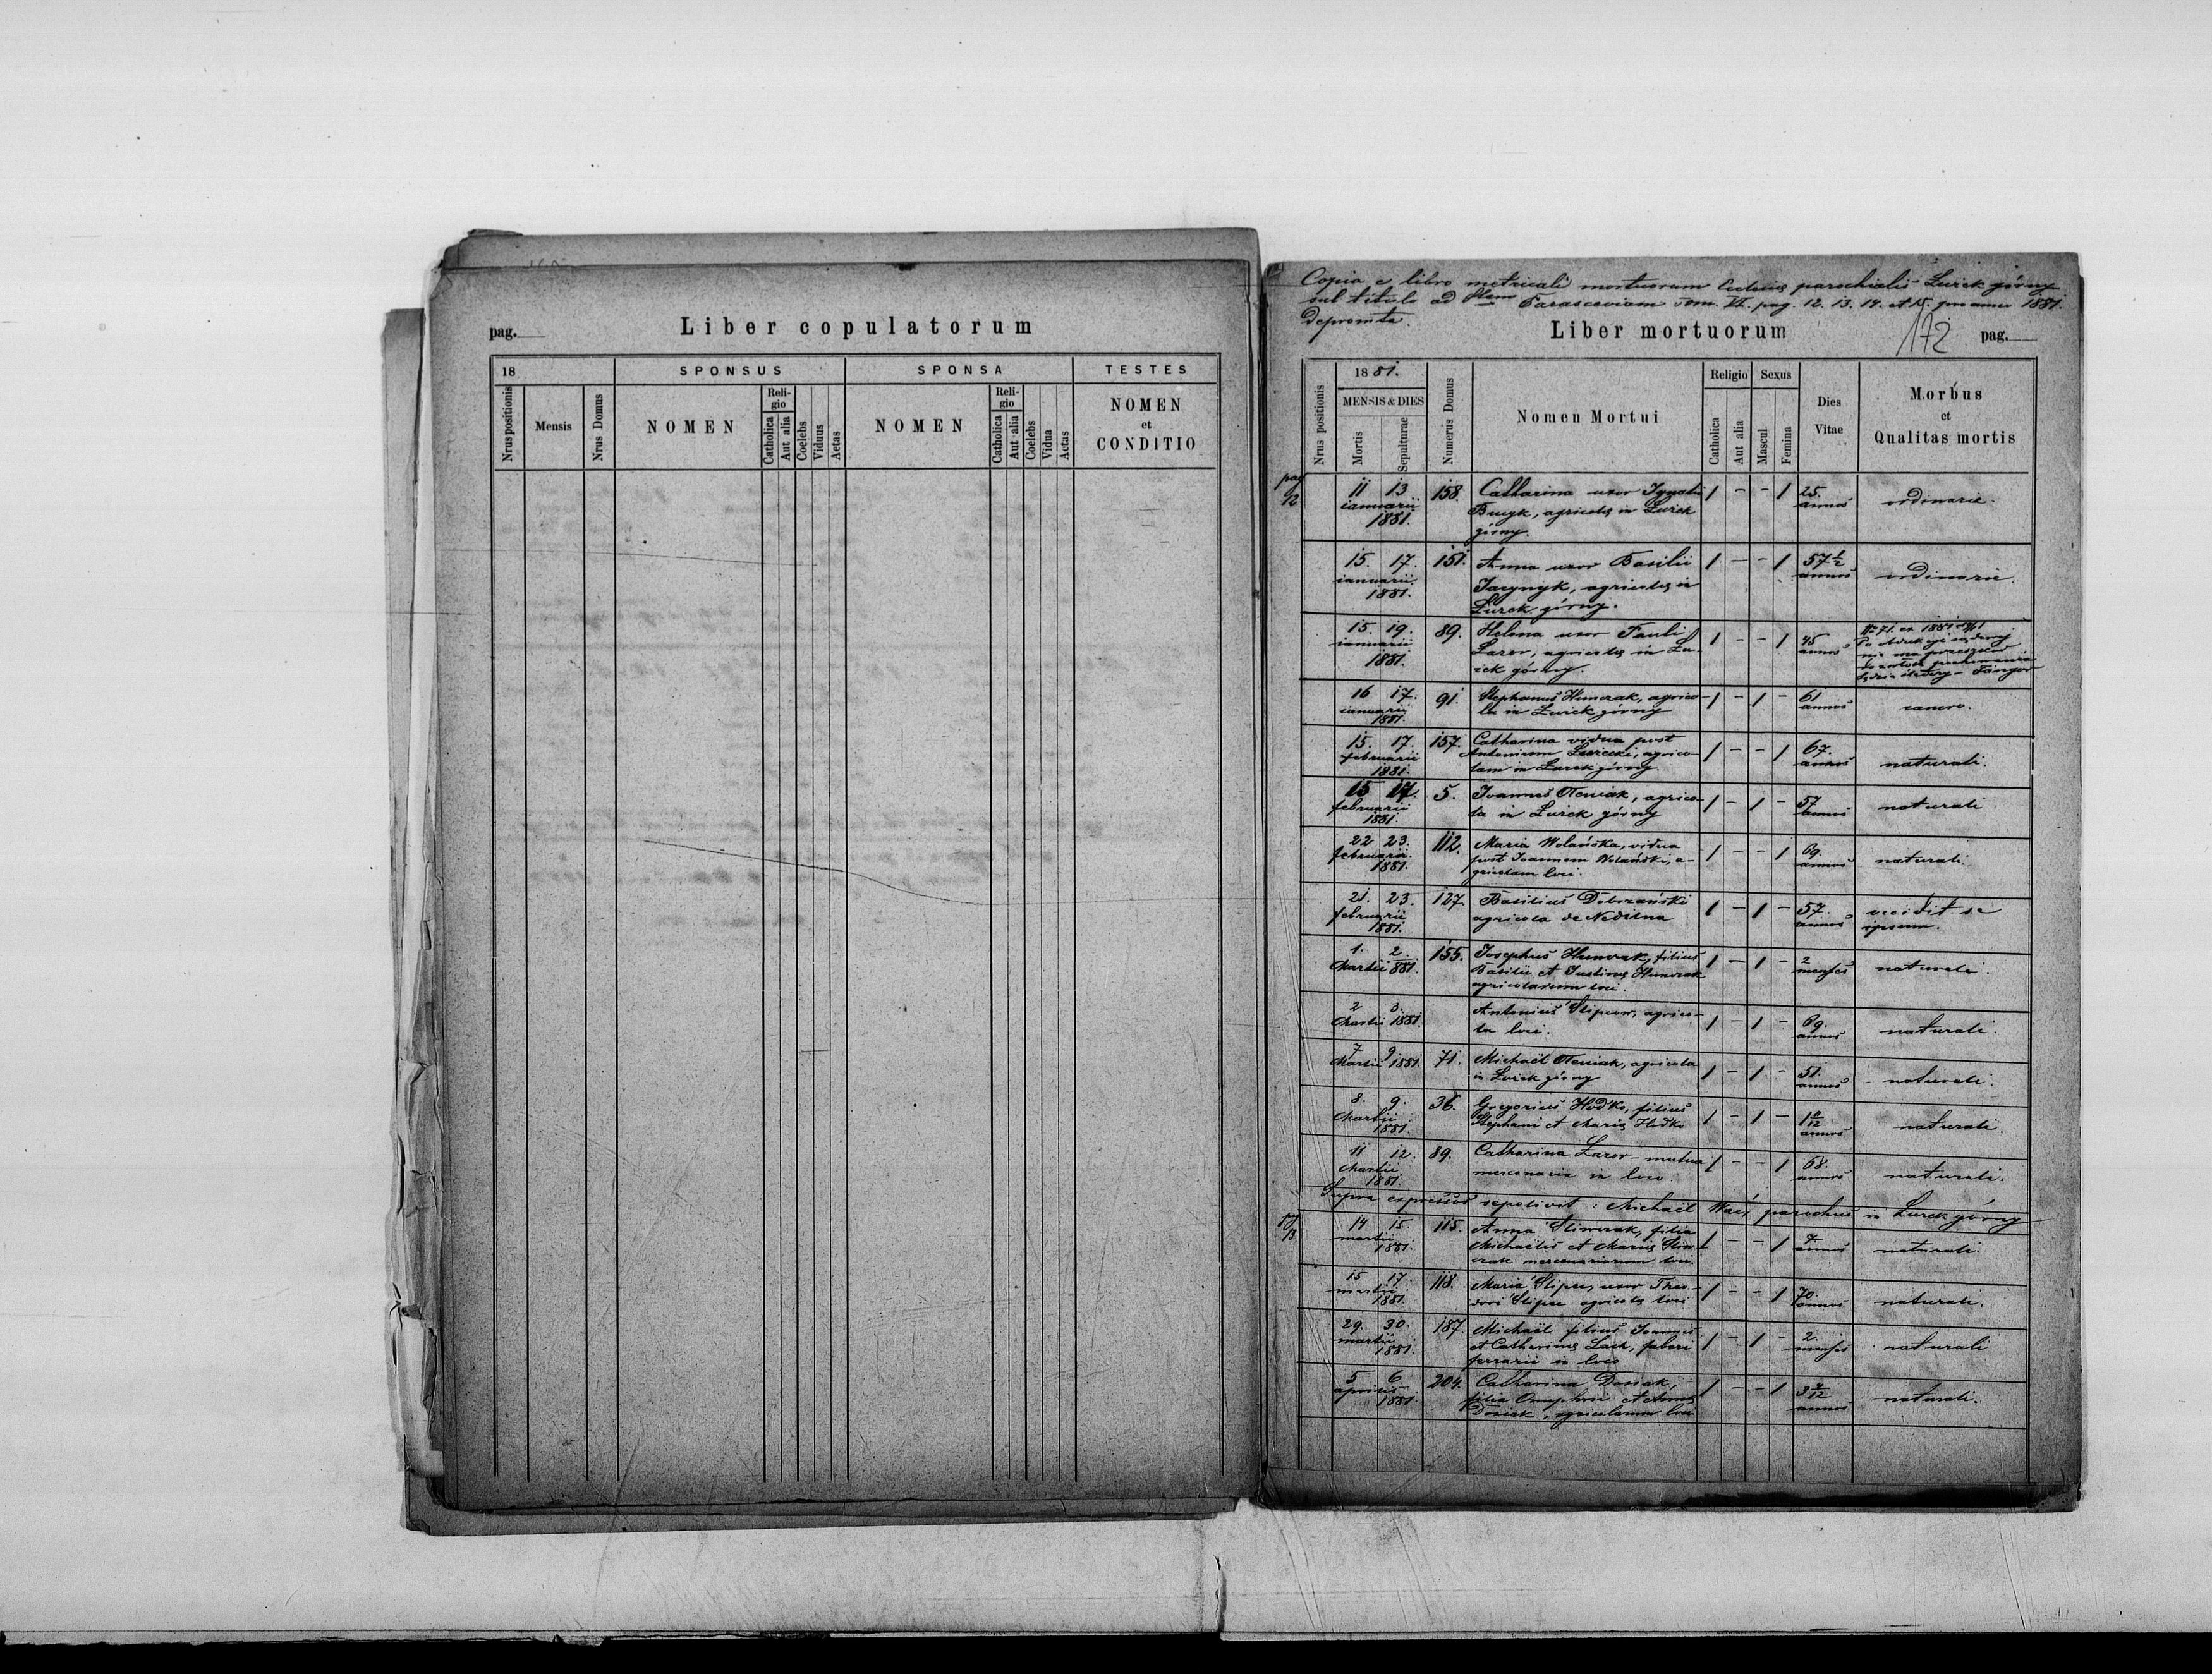 pag.
Liber copulatorum
18
SPONSUS
SPONSA
TESTES
Nrus positionis
Mensis
Nrus Domus
NOMEN
Religio
Catholica
Aut alia
Coelebs
Viduus
Aetas
NOMEN
Religio
Catholica
Aut alia
Coelebs
Vidua
Aetas
NOMEN
et
CONDITIO
Copia e libro metricali mortuorum Ecclesiae parochialis Łużek górny
sub titulo ad Stam Parasceviam Tom. VI. pag. 12. 13. 14. et 15. pro anno 1881.
depromta.
Liber mortuorum
172
pag.
Nrus positionis
1881.
MENSIS & DIES
Mortis
Sepulturae
Numerus Domus
Nomen Mortui
Religio
Catholica
Aut alia
Sexus
Mascul.
Femina
Dies
Vitae
Morbus
et
Qualitas mortis
pag 12
11 13 158. Catharina uxor Ignatii 1 - - 1 25. ordinaria.
ianuarii agricolae in Łużek annos
1881. górny.
15. 17. 151. Anna uxor Basilii 1 - - 1 57 1/2 ordinarie.
ianuarii Jacynyk, agricolae in annos
1881. Łużek górny.
15. 19. 89. Helena uxor Pauli 1 - - 1 45
ianuarii Łazor, agricolae in Łu- annos
1881. żek górny.
16 17. 91. Stephanus Humczak, agrico- 1 - 1 - 61 cancro.
ianuarii la in Łużek górny annos
1881.
15. 17. 157. Catharina vidua post 1 - - 1 67. naturali.
februarii Antonium agrico- annos
1881. lam in Łużek górny
15 17. 5. Joannes Oleniak, agrico- 1 - 1 - 57 naturali
februarii la in Łużek górny annos
1881.
22 23. 112. Maria Wolańska, vidua 1 - - 1 69. naturali.
februarii post Joannem Wolański, a-
1881. gricolam loci. annos
21. 23. 127. Basilius Dobrzański 1 - 1 - 57. occidit se
februarii agricola de Nedilna annos ipsum.
1881.
1. 2. 155. Josephus Humczak, filius 1 - 1 - 2 naturali.
Martii 881. Basilii et Justinae Humczak menses
agricolarum loci.
2 3. Antonius Slipcow, agrico- 1 - 1 - 69. naturali.
Martii 1881. la loci. annos
7 9 71. Michaël Oleniak, agricola 1 - 1 - 51. naturali.
Martii 1881. in Łużek górny annos
8. 9. 36. Gregorius Hodko, filius 1 - 1 - naturali.
Martii Stephani et Mariae Hodko annos
1881.
11 12. 89. Catharina Łazor - mutua 1 - - 1 68. naturali.
Martii mercenaria in loco. annos
1881.
Supra expressos sepelivit: Michaël parochus in Łużek górny
13
14 15. 115. Anna Slimczak, filia 1 - - 1 naturali.
martii Michaëlis et Mariae Slim- annos
1881. czak mercenariorum loci.
15 17. 118. Maria Slipec, uxor Theo- 1 - - 1 70. naturali.
martii dori Slipec agricolae loci annos
1881.
29. 30. 187. Michaël filius Joannis 1 - 1 - 2. naturali
martii et Catharinae Lach, fabri menses
1881. ferrarii in loco
5 6 204. Catharina Dosiak, 1 - - 1 naturali.
aprilis filia Onuphrii et Annae annos
1881. Dosiak, agricolarum loci